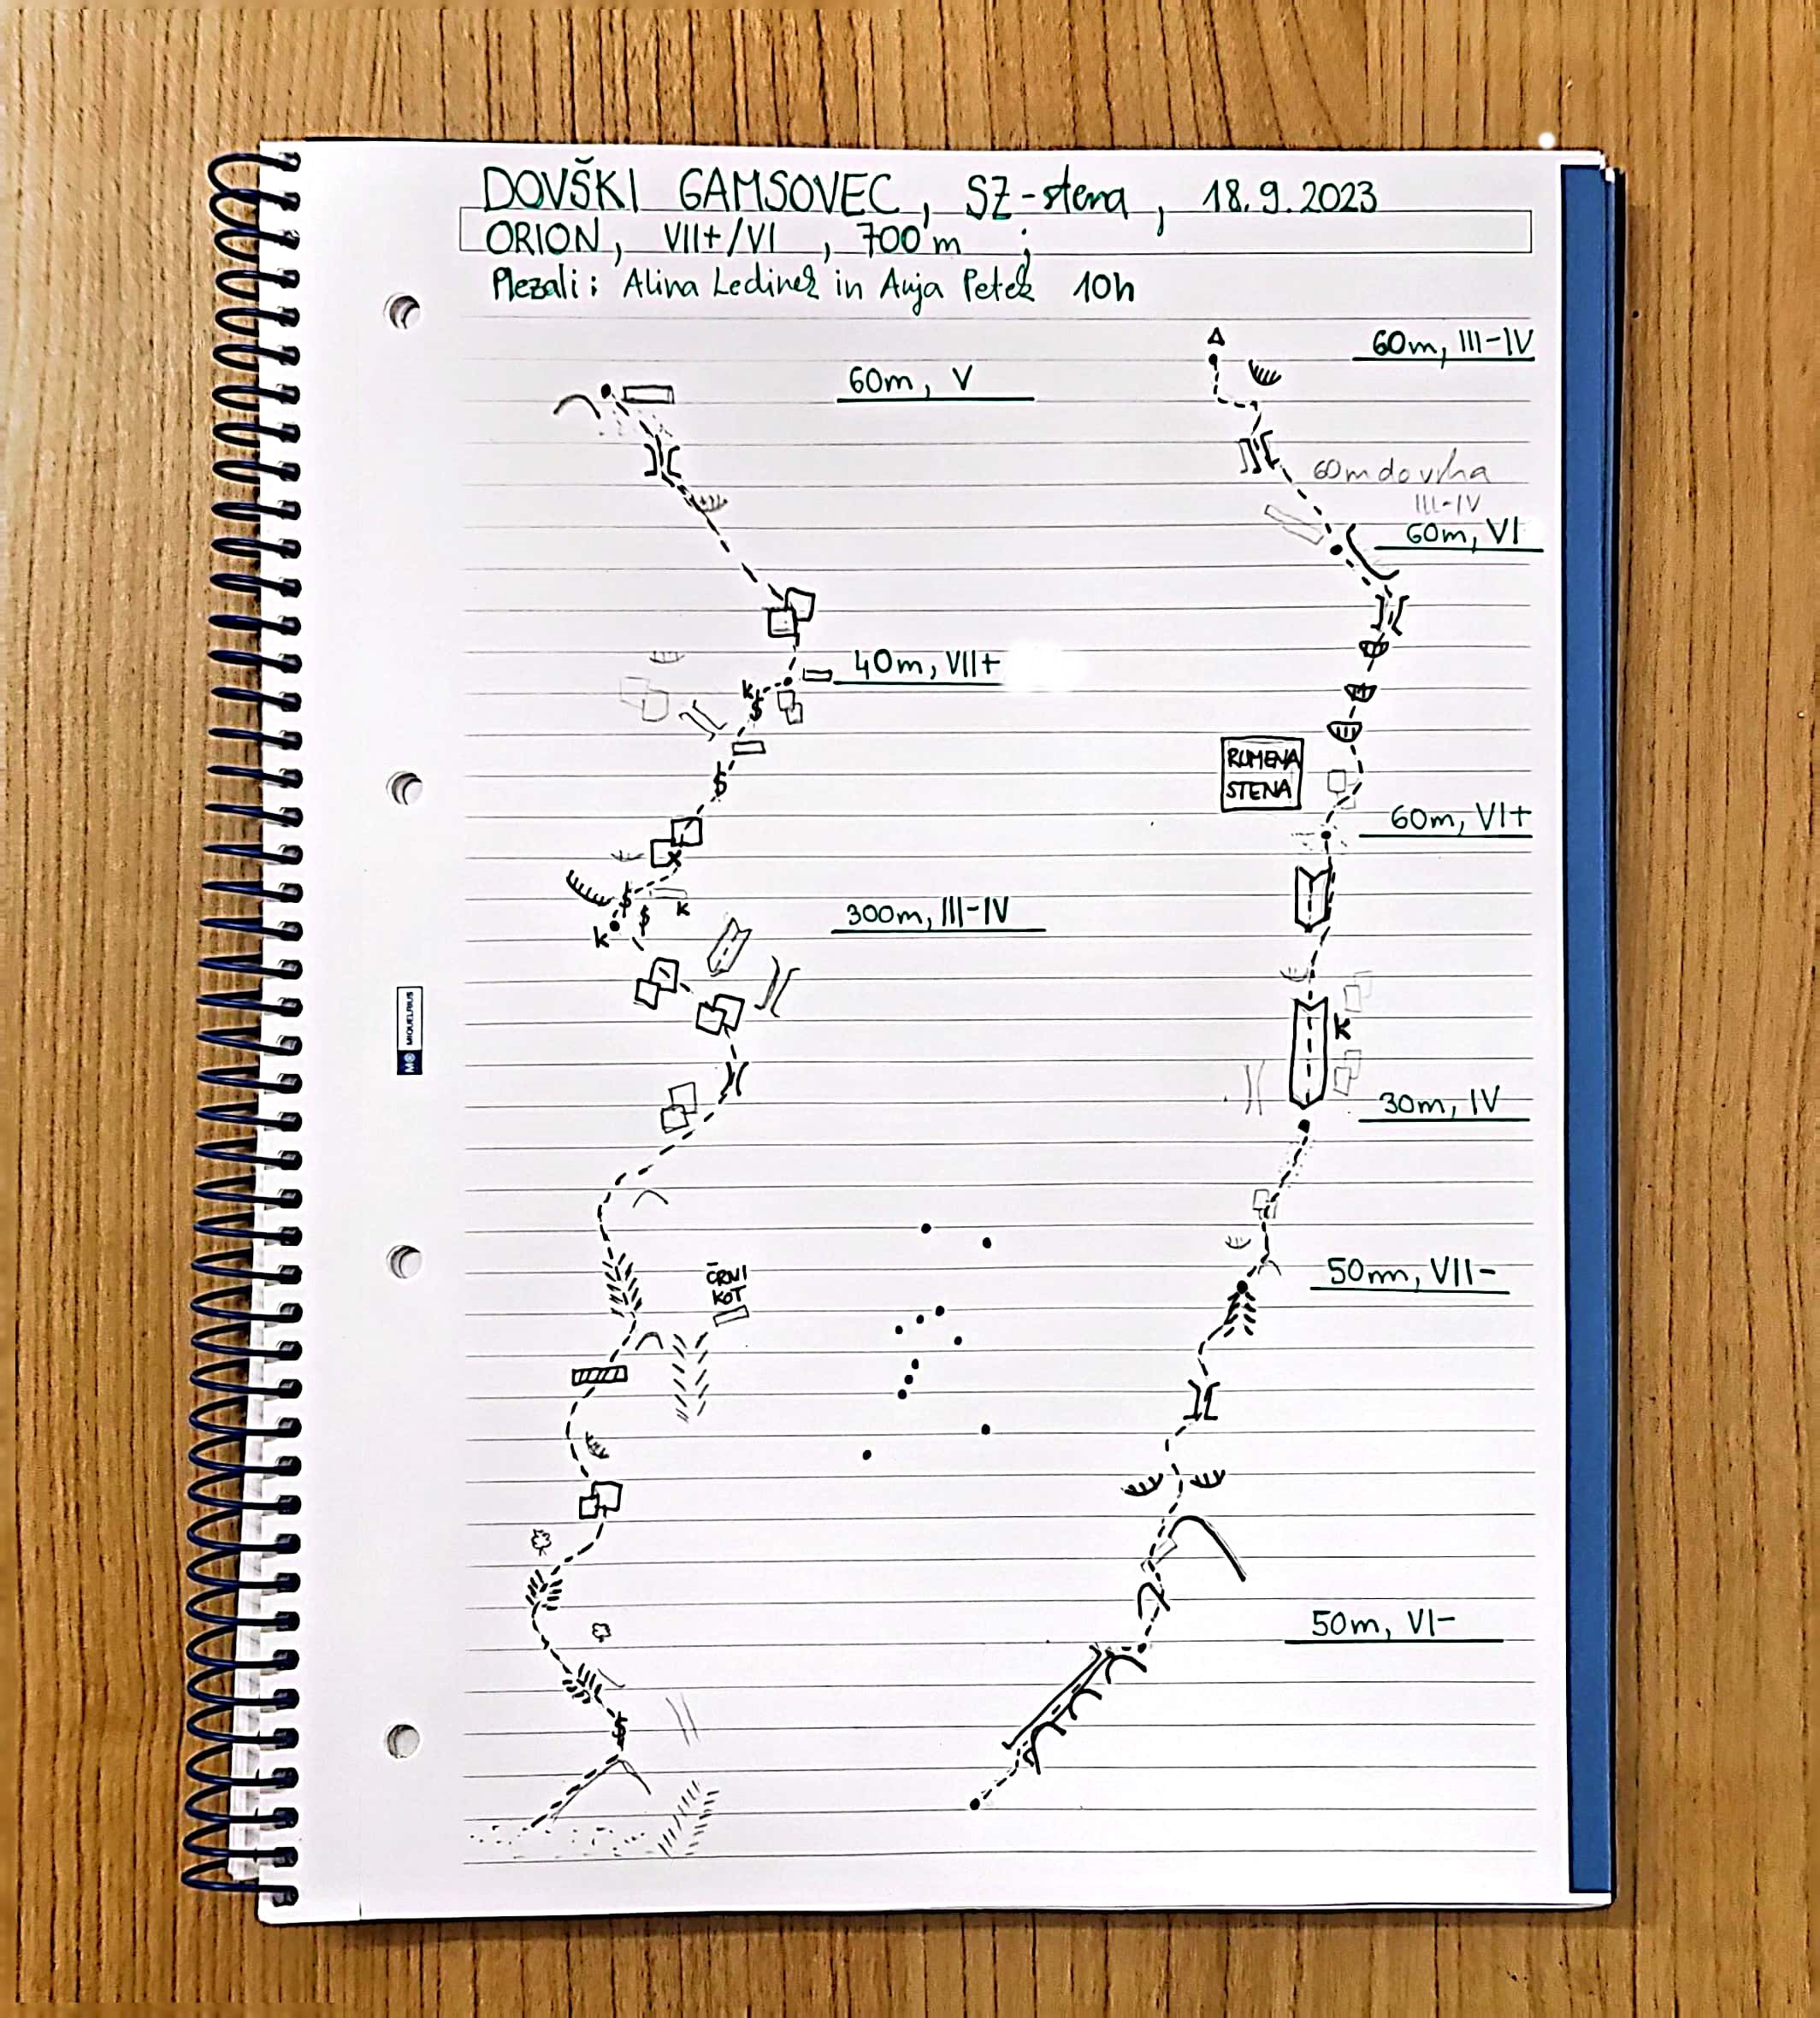 DOVŠKI GAMSOVEC, SZ-stena, 18.9.2023
ORION, VII+/VI, 700 m ;
Plezali: Alina Ledinek in Anja Petek 10h
60m, V
40m, VII+
K
K
K
300m, III-IV
ČRNI
KOT
60m, III-IV
60m do vrha
III-IV
60m, VI
RUMENA
STENA
60m, VI+
K
30m, IV
50m, VII-
50m, VI-
MIQUELRIUS